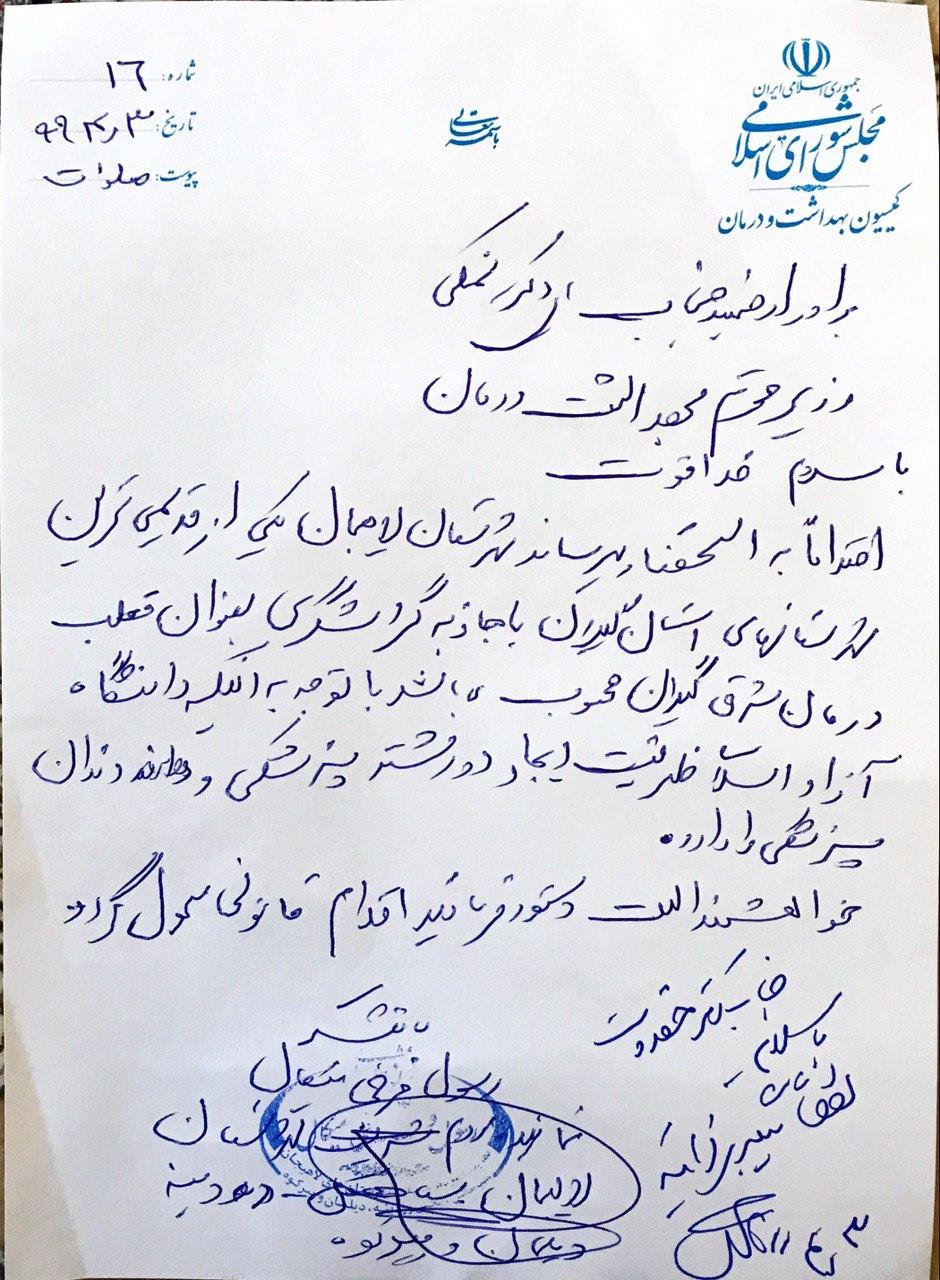 جمهوری اسلامی ایران
مجلس شورای اسلامی
کمیسیون بهداشت و درمان
باسمه تعالی
شماره: ۱۶
تاریخ: ۹۹/۴/۳
پیوست: صلوات
برادر ارجمند جناب آقای دکتر نمکی
وزیر محترم بهداشت درمان
با سلام خدا قوت
احتراماً به استحضار میرساند شهرستان لاهیجان یکی از قدیمی ترین
شهرستانهای استان گیلان با جاذبه گردشگری بعنوان قطب
درمان شرق گیلان محسوب می باشد با توجه به اینکه دانشگاه
آزاد اسلامی ظرفیت ایجاد دو رشته پزشکی و دندان
پزشکی را دارد.
خواهشمند است دستور فرمائید اقدام قانونی معمول گردد
با تشکر
رسول فرخی میکال
نماینده مردم شریف لاهیجان
رودبنه
دیلمان و
جناب دکتر
با سلام
لطفا